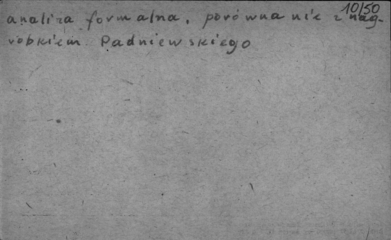 10/50
analiza formalna, porównanie z nag-
robkiem Padniewskiego